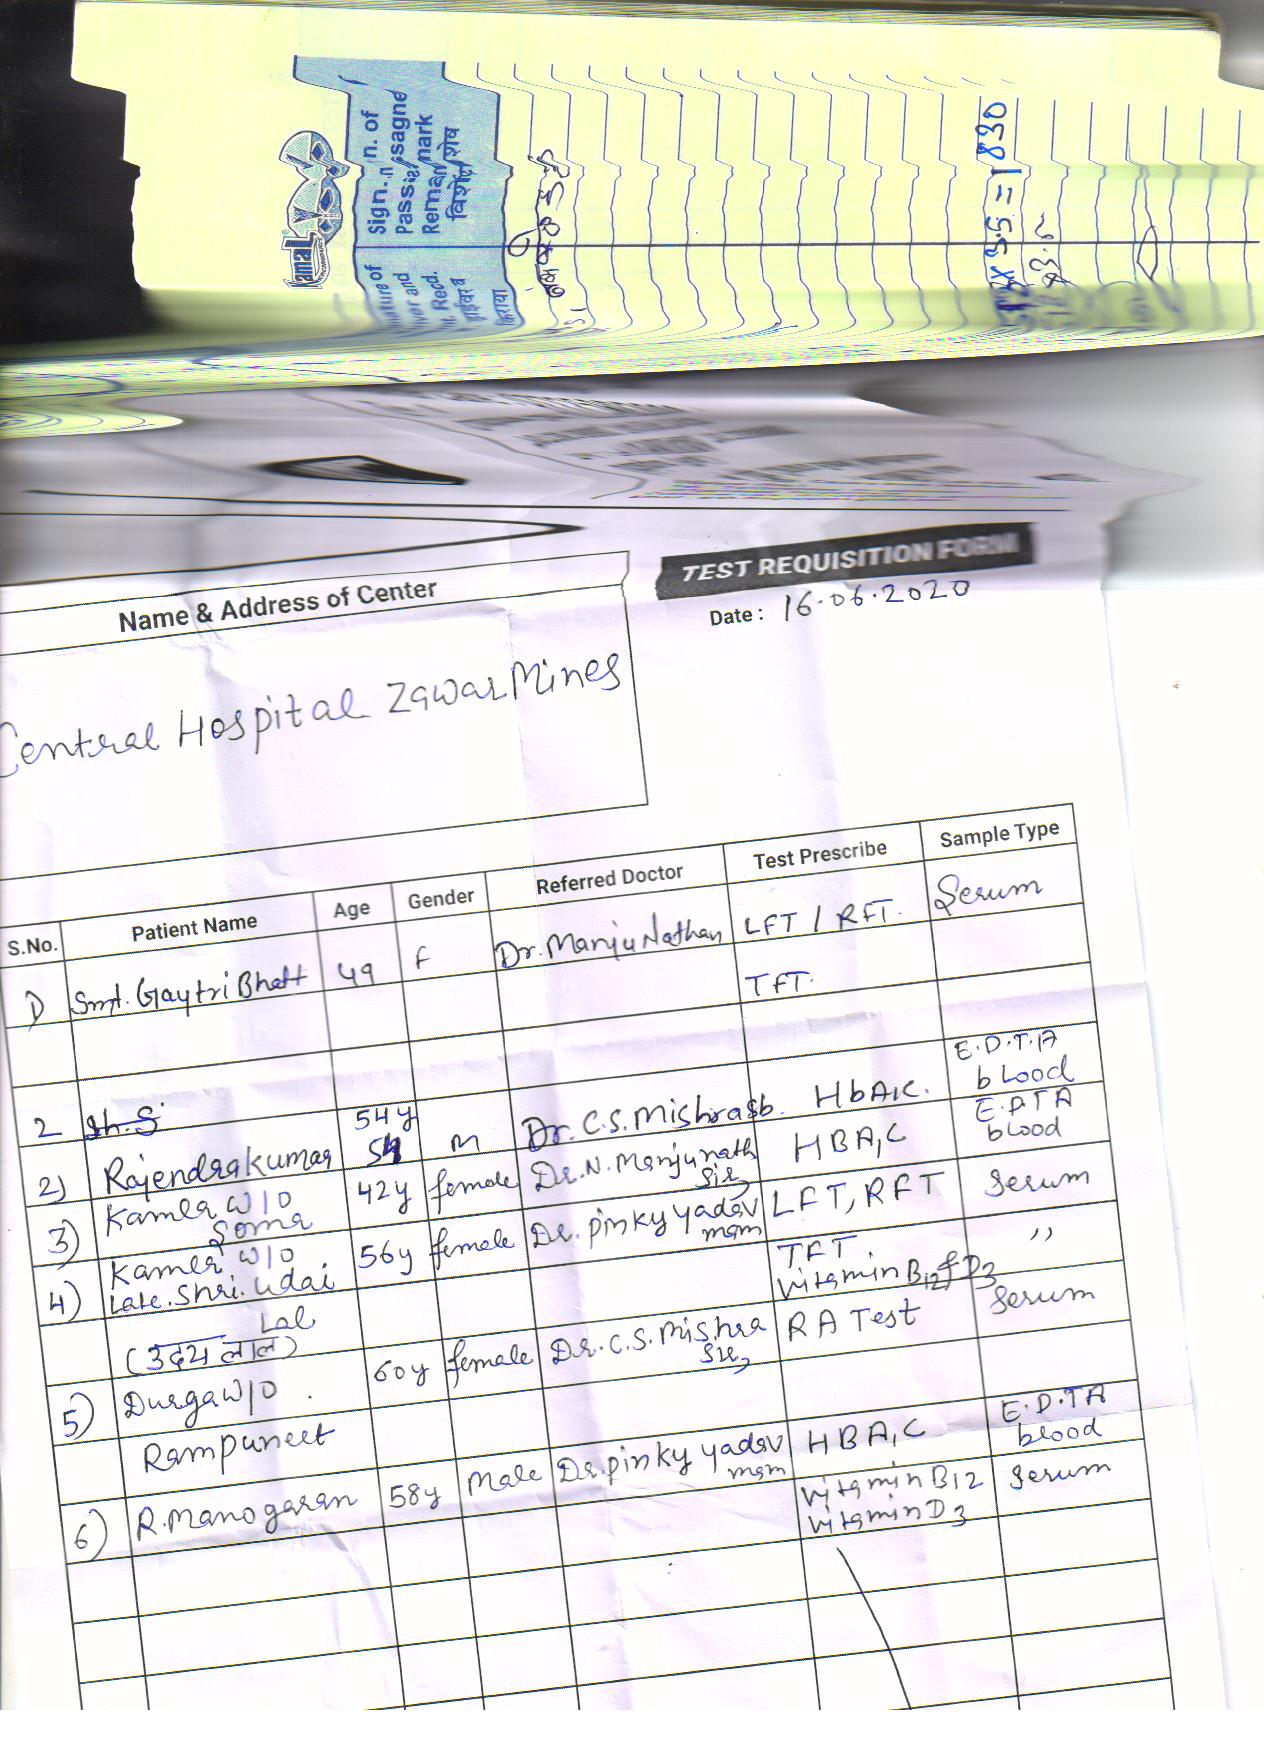 Kamal
Sign. n. of
Passa sagne
Remar mark
विशेष शेष
nature of
iver and
t. Recd.
ड्राईवर व
किराया
3.5 = 1830
TEST REQUISITION FORM
Name & Address of Center
Date : 16.06.2020
Central Hospital Zawar Mines
S.No. Patient Name Age Gender Referred Doctor Test Prescribe Sample Type
1) Smt. Gaytri Bhatt 49 F Dr. Manju Nathan LFT / RFT. Serum
TFT.
2 Sh. S 54y E.D.T.A
2) Rajendra kumar M Dr. C.S. Mishra sb. HbA1c. blood
3) Kamla W/O 42y female Dr. N. Manjunath HBA1C E.D.TA
Soma Sir blood
4) Kamla W/O 56y female Dr. pinky yadav LFT, RFT Serum
Late. Shri. Udai mam TFT. ,,
Lal Vitamin B12 & D3
(उदय लाल)
5) Durga W/O. 60y female Dr. C.S. Mishra RA Test Serum
Rampuneet Sir
6) R. Manogaran 58y Male Dr. pinky yadav HBA1C E.D.TA
mam blood
Vitamin B12 Serum
Vitamin D3